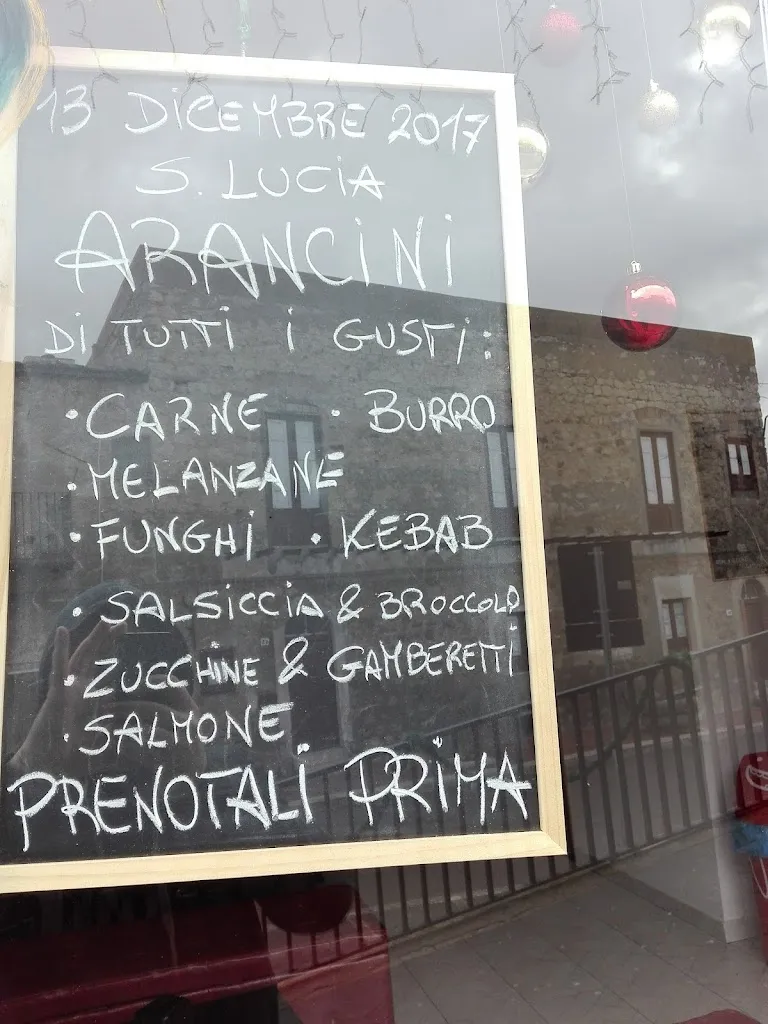 13 DICEMBRE 2017
S. LUCIA
ARANCINI
DI TUTTI I GUSTI:
• CARNE • BURRO
• MELANZANE
• FUNGHI • KEBAB
• SALSICCIA & BROCCOLO
• ZUCCHINE & GAMBERETTI
• SALMONE
PRENOTALI PRIMA